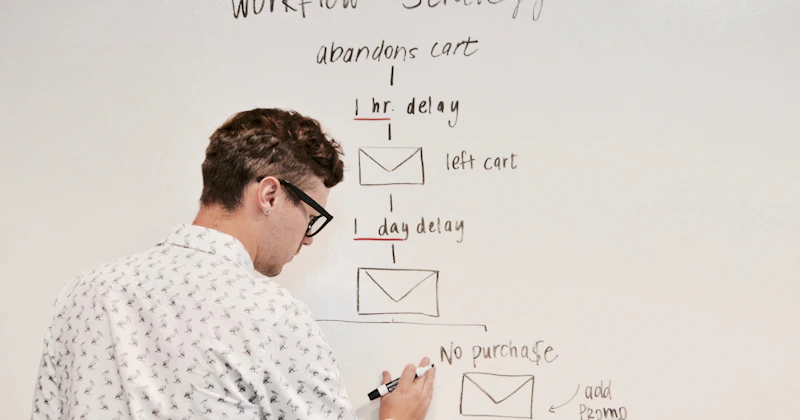 Workflow Strategy
abandons cart
1 hr. delay
left cart
1 day delay
No purchase
add
Promo